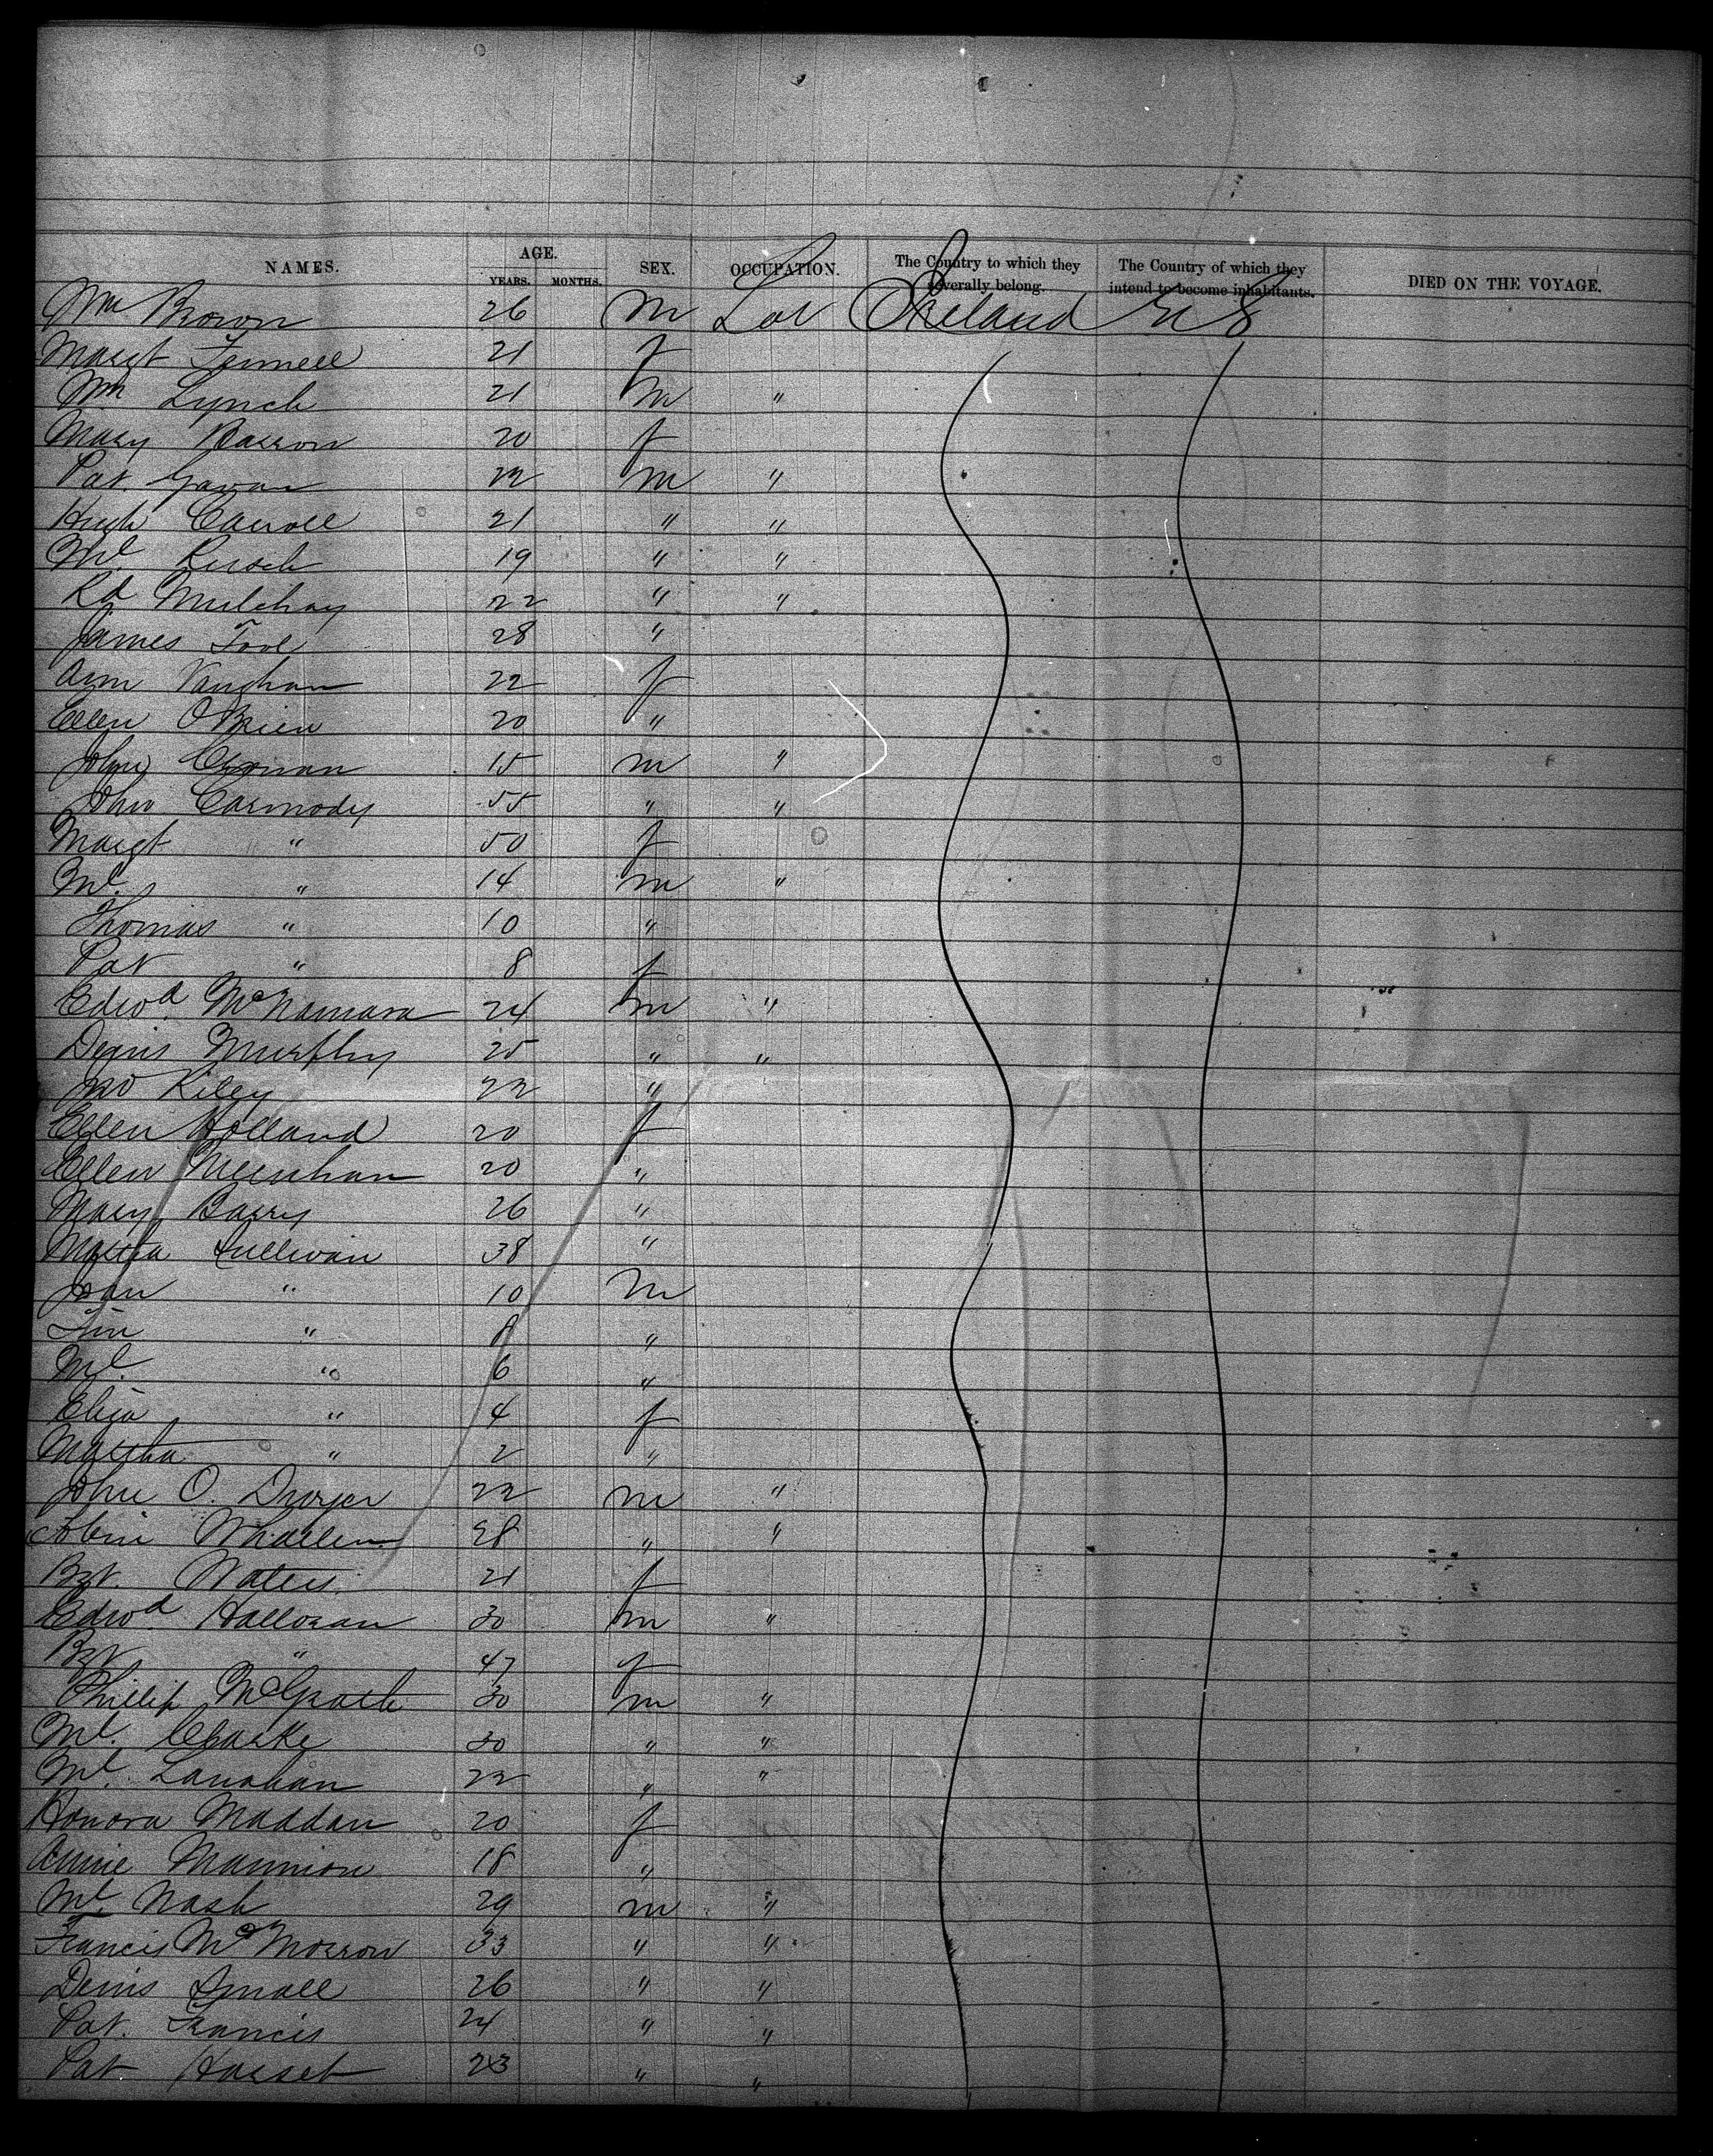 NAMES. AGE. YEARS. MONTHS. SEX. OCCUPATION. The Country to which they severally belong. The Country of which they intend to become inhabitants. DIED ON THE VOYAGE.
Wm Brown 26 m Lab Ireland U S
Margt Fennell 21 f
Wm Lynch 21 m "
Mary Barron 20 f
Pat Gavan 22 m "
Hugh Carroll 21 " "
Ml 19 " "
Rd Mulchay 22 " "
James Tool 28 "
Ann Vaughan 22 f
Ellen OBrien 20 "
John 15 m "
John Carmody 55 " "
Margt " 50 f
Ml. " 14 m "
Thomas " 10 "
Pat " 8 f
Edwd. McNamara 24 m "
Denis Murphy 25 " "
Jno Kiley 22 "
Ellen Holland 20 f
Ellen 20 "
Mary Barry 26 "
Martha Sullivan 38 "
" 10 m
Tim " 8 "
Ml. " 6 "
Eliza " 4 f
Martha " 2 "
John O. Dwyer 22 m "
Whallen 28 " "
Bgt. Waters 21 f
Edwd. Halloran 30 m "
Bgt " 47 f
Phillip McGrath 30 m "
Ml. Clarke 30 " "
Ml. Lanahan 22 " "
Honora Maddan 20 f
Annie Mannion 18 "
Ml. Nash 29 m "
Francis McMorrow 33 " "
Denis Small 26 " "
Pat. Francis 24 " "
Pat Hasset 23 " "